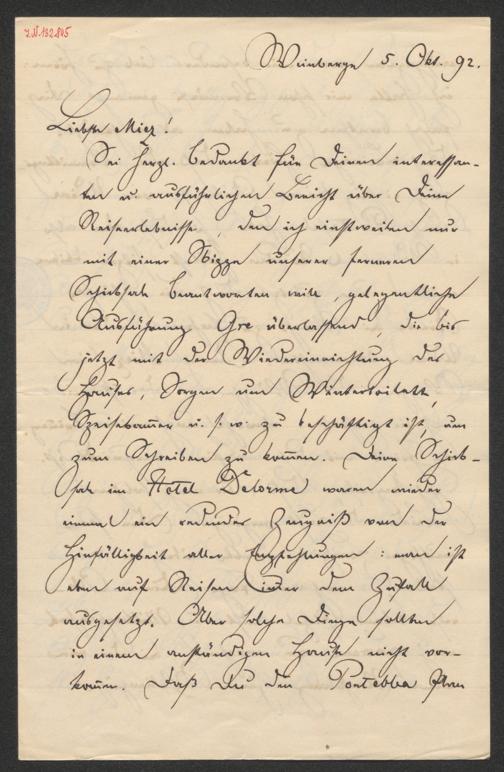 J.N. 132.805
Weinberge 5. Okt. 92.
Liebste Miez!
Sei herzl. bedankt für Deinen interessan-
ten u. ausführlichen Bericht über Deine
Reiseerlebnisse, den ich einstweilen nur
mit einer Skizze unserer ferneren
Schicksale beantworten will, gelegentliche
Ausführung Gre überlassend, die bis
jetzt mit der Wiedereinrichtung des
Hauses, Sorgen um Wintertoilette,
Speisekam̅er u. s. w. zu beschäftigt ist, um
zum Schreiben zu kom̅en. Deine Schick-
sale im Hotel Delorme waren wieder
einmal ein redendes Zeugniß von der
Hinfälligkeit aller Empfehlungen: man ist
eben auf Reisen im̅er dem Zufall
ausgesetzt. Aber solche Dinge sollten
in einem anständigen Hause nicht vor-
kom̅en. Daß Du den Pontebba Plan